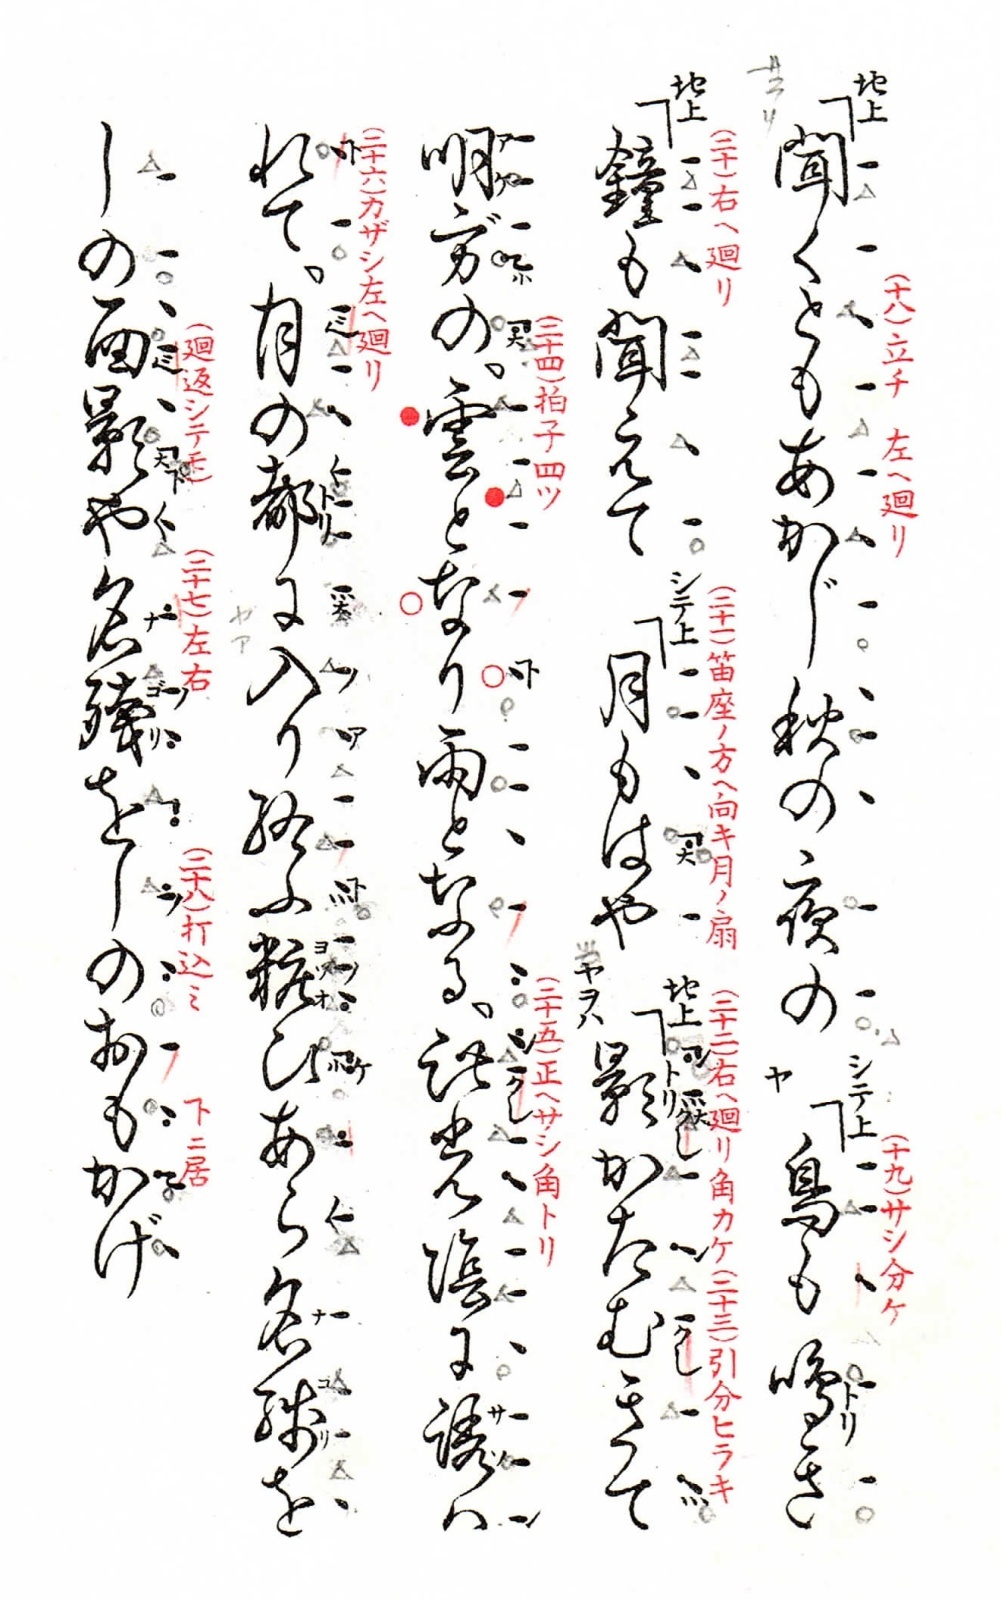 (十八)立チ 左ヘ廻リ (十九)サシ分ケ
地上 聞くともあかじ秋の夜の シテ上 鳥も鳴き
(二十)右ヘ廻リ (二十一)笛座ノ方ヘ向キ月ノ扇 (二十二)右ヘ廻リ角カケ(二十三)引分ヒラキ
地上 鐘も聞えて シテ上 月もはや 地上 影かたむきて
(二十四)拍子四ツ (二十五)正ヘサシ角トリ
明方の。雲となり雨となる。此光陰に誘ハ
(二十六)カザシ左ヘ廻リ
れて。月の都に入り給ふ粧ひあら名残を
(廻返シテモ) (二十七)左右 (二十八)打込ミ 下ニ居
しの面影や名残をしのおもかげ